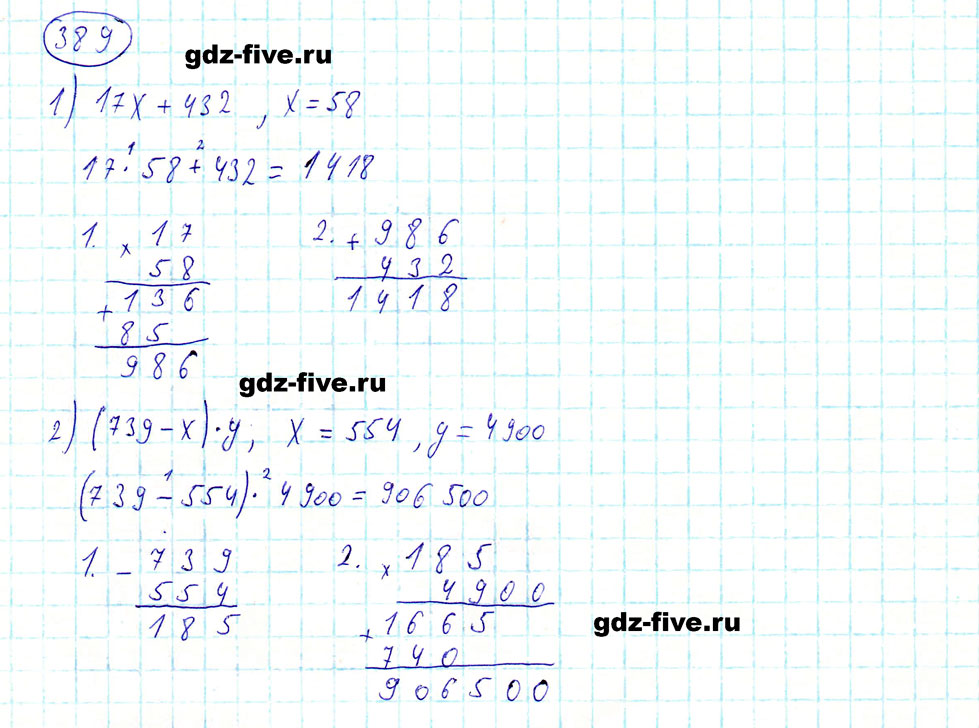 389
gdz-five.ru
1) 17x + 432 , x = 58
17 ·¹ 58 +² 432 = 1418
1. × 17
58
+ 136
85
986
2. + 986
432
1418
gdz-five.ru
2) (739 - x) · y ; x = 554 , y = 4900
(739 -¹ 554) ·² 4900 = 906 500
1. - 739
554
185
2. × 185
4900
+ 1665
740
906500
gdz-five.ru